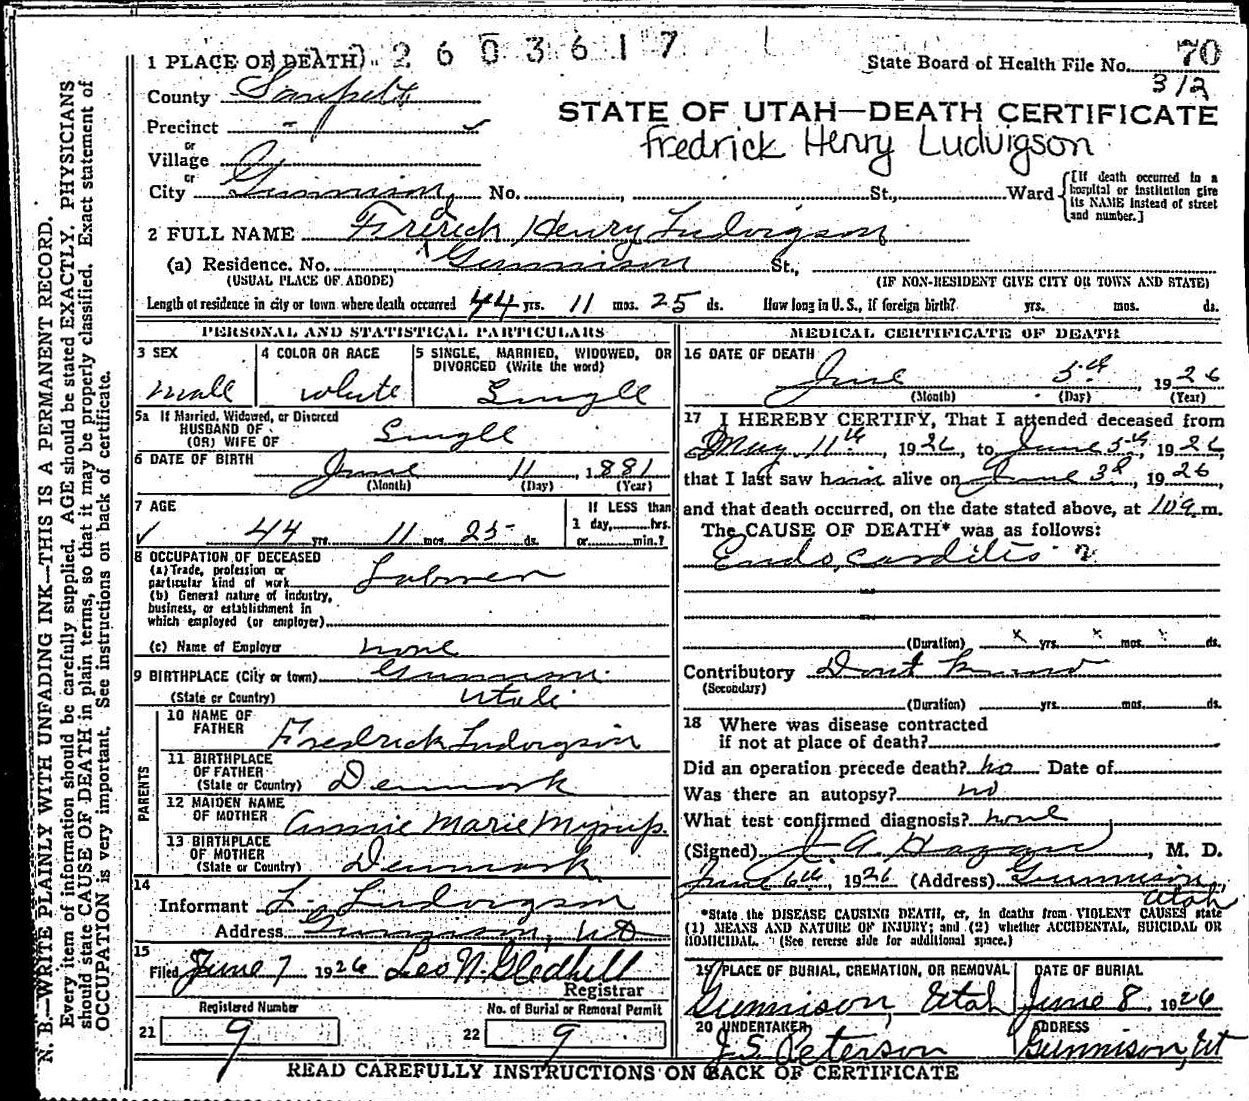 2603617
1 PLACE OF DEATH
State Board of Health File No. 70
312
County Sanpete
STATE OF UTAH—DEATH CERTIFICATE
Precinct -
Fredrick Henry Ludvigson
or
Village
or
City Gunnison, No. , St., Ward
[If death occurred in a hospital or institution give its NAME instead of street and number.]
2 FULL NAME Henry Ludvigson
(a) Residence. No. Gunnison St.,
(USUAL PLACE OF ABODE) (IF NON-RESIDENT GIVE CITY OR TOWN AND STATE)
Length of residence in city or town where death occurred 44 yrs. 11 mos. 25 ds. How long in U. S., if foreign birth? yrs. mos. ds.
PERSONAL AND STATISTICAL PARTICULARS
3 SEX
male
4 COLOR OR RACE
white
5 SINGLE, MARRIED, WIDOWED, OR DIVORCED (Write the word)
Single
5a If Married, Widowed, or Divorced
HUSBAND OF
(OR) WIFE OF Single
6 DATE OF BIRTH June 11, 1881
(Month) (Day) (Year)
7 AGE
44 yrs. 11 mos. 25 ds.
If LESS than
1 day, hrs.
or min.?
8 OCCUPATION OF DECEASED
(a) Trade, profession or
particular kind of work
(b) General nature of industry,
business, or establishment in
which employed (or employer)
(c) Name of Employer none
9 BIRTHPLACE (City or town) Gunnison
(State or Country) Utah
PARENTS
10 NAME OF
FATHER Fredrick Ludvigson
11 BIRTHPLACE
OF FATHER
(State or Country) Denmark
12 MAIDEN NAME
OF MOTHER Annie Marie
13 BIRTHPLACE
OF MOTHER
(State or Country) Denmark
14
Informant L. Ludvigson
Address Gunnison, Ut
15
Filed June 7 1926 Leo N. Gledhill
Registrar
Registered Number
21 9
No. of Burial or Removal Permit
22 9
MEDICAL CERTIFICATE OF DEATH
16 DATE OF DEATH
June 5th, 1926
(Month) (Day) (Year)
17 I HEREBY CERTIFY, That I attended deceased from
May 11th, 1926, to June 5th, 1926,
that I last saw him alive on June 3d, 1926,
and that death occurred, on the date stated above, at 10 a.m.
The CAUSE OF DEATH* was as follows:
Endo, carditis ?
(Duration) x yrs. x mos. x ds.
Contributory Dont know
(Secondary)
(Duration) yrs. mos. ds.
18 Where was disease contracted
if not at place of death?
Did an operation precede death? no Date of
Was there an autopsy? no
What test confirmed diagnosis? none
(Signed) J. A. Hagan, M. D.
June 6th, 1926 (Address) Gunnison
Utah
*State the DISEASE CAUSING DEATH, or, in deaths from VIOLENT CAUSES state
(1) MEANS AND NATURE OF INJURY; and (2) whether ACCIDENTAL, SUICIDAL OR
HOMICIDAL. (See reverse side for additional space.)
19 PLACE OF BURIAL, CREMATION, OR REMOVAL
Gunnison, Utah
DATE OF BURIAL
June 8, 1926
20 UNDERTAKER
J. S. Peterson
ADDRESS
Gunnison, Ut
READ CAREFULLY INSTRUCTIONS ON BACK OF CERTIFICATE
N. B.—WRITE PLAINLY WITH UNFADING INK—THIS IS A PERMANENT RECORD.
Every item of information should be carefully supplied. AGE should be stated EXACTLY. PHYSICIANS
should state CAUSE OF DEATH in plain terms, so that it may be properly classified. Exact statement of
OCCUPATION is very important. See instructions on back of certificate.